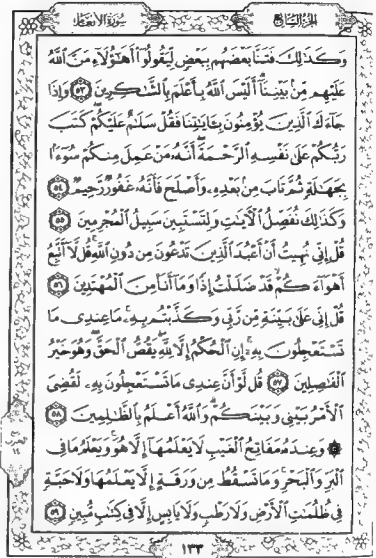 الجزء السابع سورة الأنعام
وَكَذَٰلِكَ فَتَنَّا بَعْضَهُم بِبَعْضٍ لِّيَقُولُوٓا۟ أَهَـٰٓؤُلَآءِ مَنَّ ٱللَّهُ
عَلَيْهِم مِّنۢ بَيْنِنَآ أَلَيْسَ ٱللَّهُ بِأَعْلَمَ بِٱلشَّـٰكِرِينَ ٥٣ وَإِذَا
جَآءَكَ ٱلَّذِينَ يُؤْمِنُونَ بِـَٔايَـٰتِنَا فَقُلْ سَلَـٰمٌ عَلَيْكُمْ كَتَبَ
رَبُّكُمْ عَلَىٰ نَفْسِهِ ٱلرَّحْمَةَ أَنَّهُۥ مَنْ عَمِلَ مِنكُمْ سُوٓءًۢا
بِجَهَـٰلَةٍ ثُمَّ تَابَ مِنۢ بَعْدِهِۦ وَأَصْلَحَ فَأَنَّهُۥ غَفُورٌ رَّحِيمٌ ٥٤
وَكَذَٰلِكَ نُفَصِّلُ ٱلْـَٔايَـٰتِ وَلِتَسْتَبِينَ سَبِيلُ ٱلْمُجْرِمِينَ ٥٥
قُلْ إِنِّى نُهِيتُ أَنْ أَعْبُدَ ٱلَّذِينَ تَدْعُونَ مِن دُونِ ٱللَّهِ قُل لَّآ أَتَّبِعُ
أَهْوَآءَكُمْ قَدْ ضَلَلْتُ إِذًا وَمَآ أَنَا۠ مِنَ ٱلْمُهْتَدِينَ ٥٦
قُلْ إِنِّى عَلَىٰ بَيِّنَةٍ مِّن رَّبِّى وَكَذَّبْتُم بِهِۦ مَا عِندِى مَا
تَسْتَعْجِلُونَ بِهِۦٓ إِنِ ٱلْحُكْمُ إِلَّا لِلَّهِ يَقُصُّ ٱلْحَقَّ وَهُوَ خَيْرُ
ٱلْفَـٰصِلِينَ ٥٧ قُل لَّوْ أَنَّ عِندِى مَا تَسْتَعْجِلُونَ بِهِۦ لَقُضِىَ
ٱلْأَمْرُ بَيْنِى وَبَيْنَكُمْ وَٱللَّهُ أَعْلَمُ بِٱلظَّـٰلِمِينَ ٥٨
۞ وَعِندَهُۥ مَفَاتِحُ ٱلْغَيْبِ لَا يَعْلَمُهَآ إِلَّا هُوَ وَيَعْلَمُ مَا فِى
ٱلْبَرِّ وَٱلْبَحْرِ وَمَا تَسْقُطُ مِن وَرَقَةٍ إِلَّا يَعْلَمُهَا وَلَا حَبَّةٍ
فِى ظُلُمَـٰتِ ٱلْأَرْضِ وَلَا رَطْبٍ وَلَا يَابِسٍ إِلَّا فِى كِتَـٰبٍ مُّبِينٍ ٥٩
١٣٣